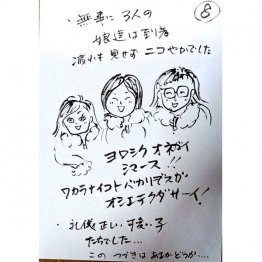 ⑧
・無事に3人の
娘達は到着
疲れも見せずニコやかでした
ヨロシク オネガイ
シマース!!
ワカラナイコトバカリデスガ
オシエテクダサーイ!
・礼儀正しい可愛い子
たちでした…
この つづきは あるかどうか…